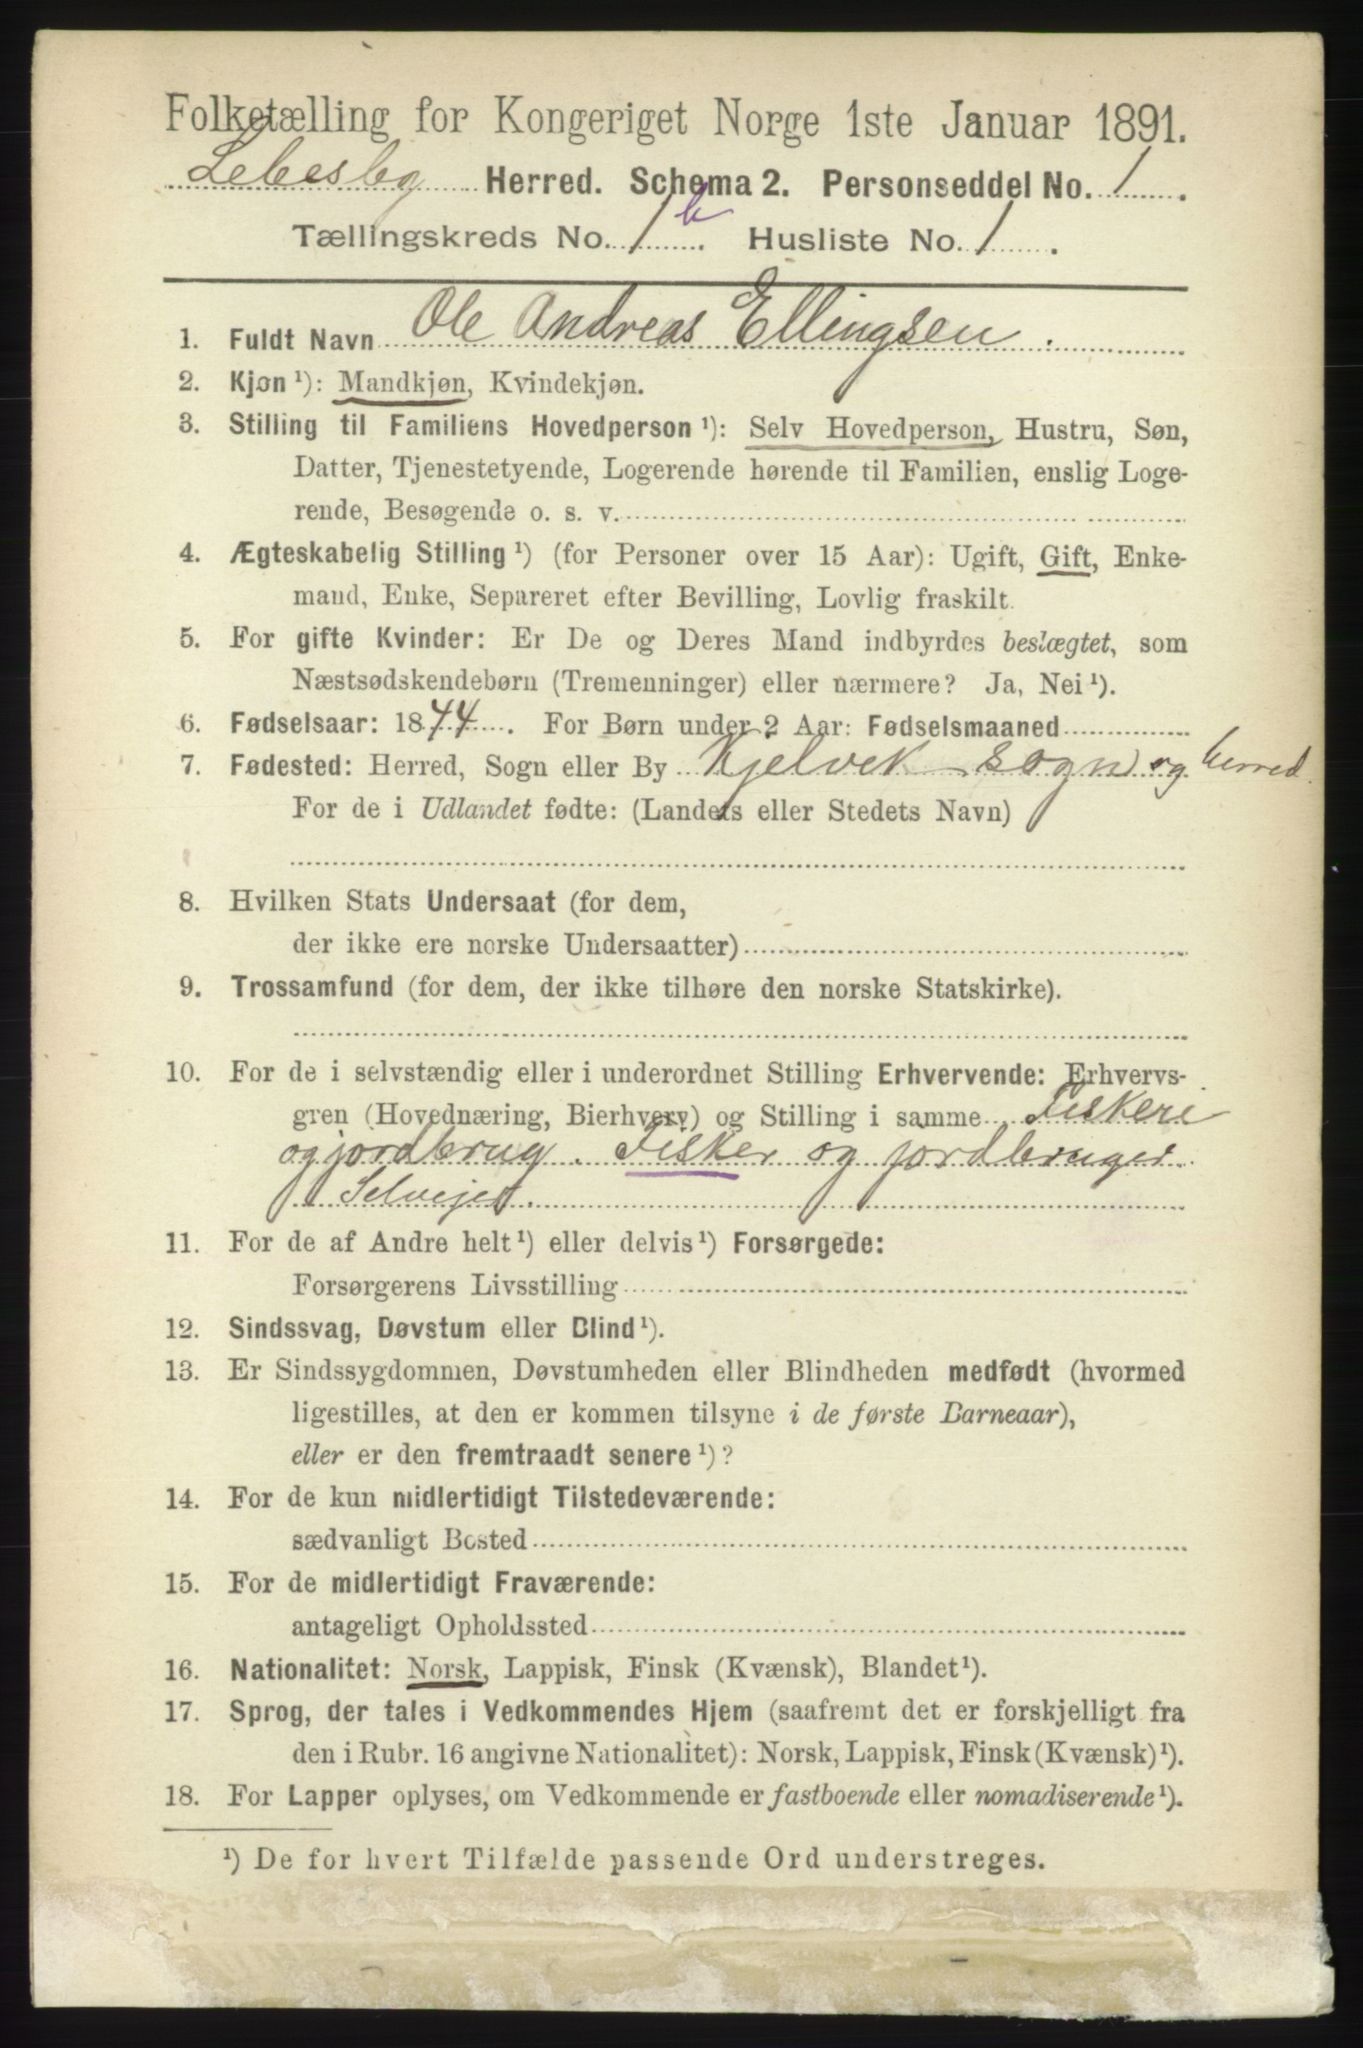 Folketælling for Kongeriget Norge 1ste Januar 1891.
Lebesby Herred. Schema 2. Personseddel No. 1.
Tællingskreds No. 1 b. Husliste No. 1.
1. Fuldt Navn Ole Andreas Ellingsen.
2. Kjøn ¹): Mandkjøn, Kvindekjøn.
3. Stilling til Familiens Hovedperson ¹): Selv Hovedperson, Hustru, Søn,
Datter, Tjenestetyende, Logerende hørende til Familien, enslig Loge-
rende, Besøgende o. s. v.
4. Ægteskabelig Stilling ¹) (for Personer over 15 Aar): Ugift, Gift, Enke-
mand, Enke, Separeret efter Bevilling, Lovlig fraskilt.
5. For gifte Kvinder: Er De og Deres Mand indbyrdes beslægtet, som
Næstsødskendebørn (Tremenninger) eller nærmere? Ja, Nei ¹).
6. Fødselsaar: 1844. For Børn under 2 Aar: Fødselsmaaned
7. Fødested: Herred, Sogn eller By Kjelvik sogn og herred.
For de i Udlandet fødte: (Landets eller Stedets Navn)
8. Hvilken Stats Undersaat (for dem,
der ikke ere norske Undersaatter)
9. Trossamfund (for dem, der ikke tilhøre den norske Statskirke).
10. For de i selvstændig eller i underordnet Stilling Erhvervende: Erhvervs-
gren (Hovednæring, Bierhverv) og Stilling i samme Fiskeri
og jordbrug. Fisker og jordbruger
Selvejer.
11. For de af Andre helt ¹) eller delvis ¹) Forsørgede:
Forsørgerens Livsstilling
12. Sindssvag, Døvstum eller Blind ¹).
13. Er Sindssygdommen, Døvstumheden eller Blindheden medfødt (hvormed
ligestilles, at den er kommen tilsyne i de første Barneaar),
eller er den fremtraadt senere ¹)?
14. For de kun midlertidigt Tilstedeværende:
sædvanligt Bosted
15. For de midlertidigt Fraværende:
antageligt Opholdssted
16. Nationalitet: Norsk, Lappisk, Finsk (Kvænsk), Blandet ¹).
17. Sprog, der tales i Vedkommendes Hjem (saafremt det er forskjelligt fra
den i Rubr. 16 angivne Nationalitet): Norsk, Lappisk, Finsk (Kvænsk) ¹).
18. For Lapper oplyses, om Vedkommende er fastboende eller nomadiserende ¹).
¹) De for hvert Tilfælde passende Ord understreges.